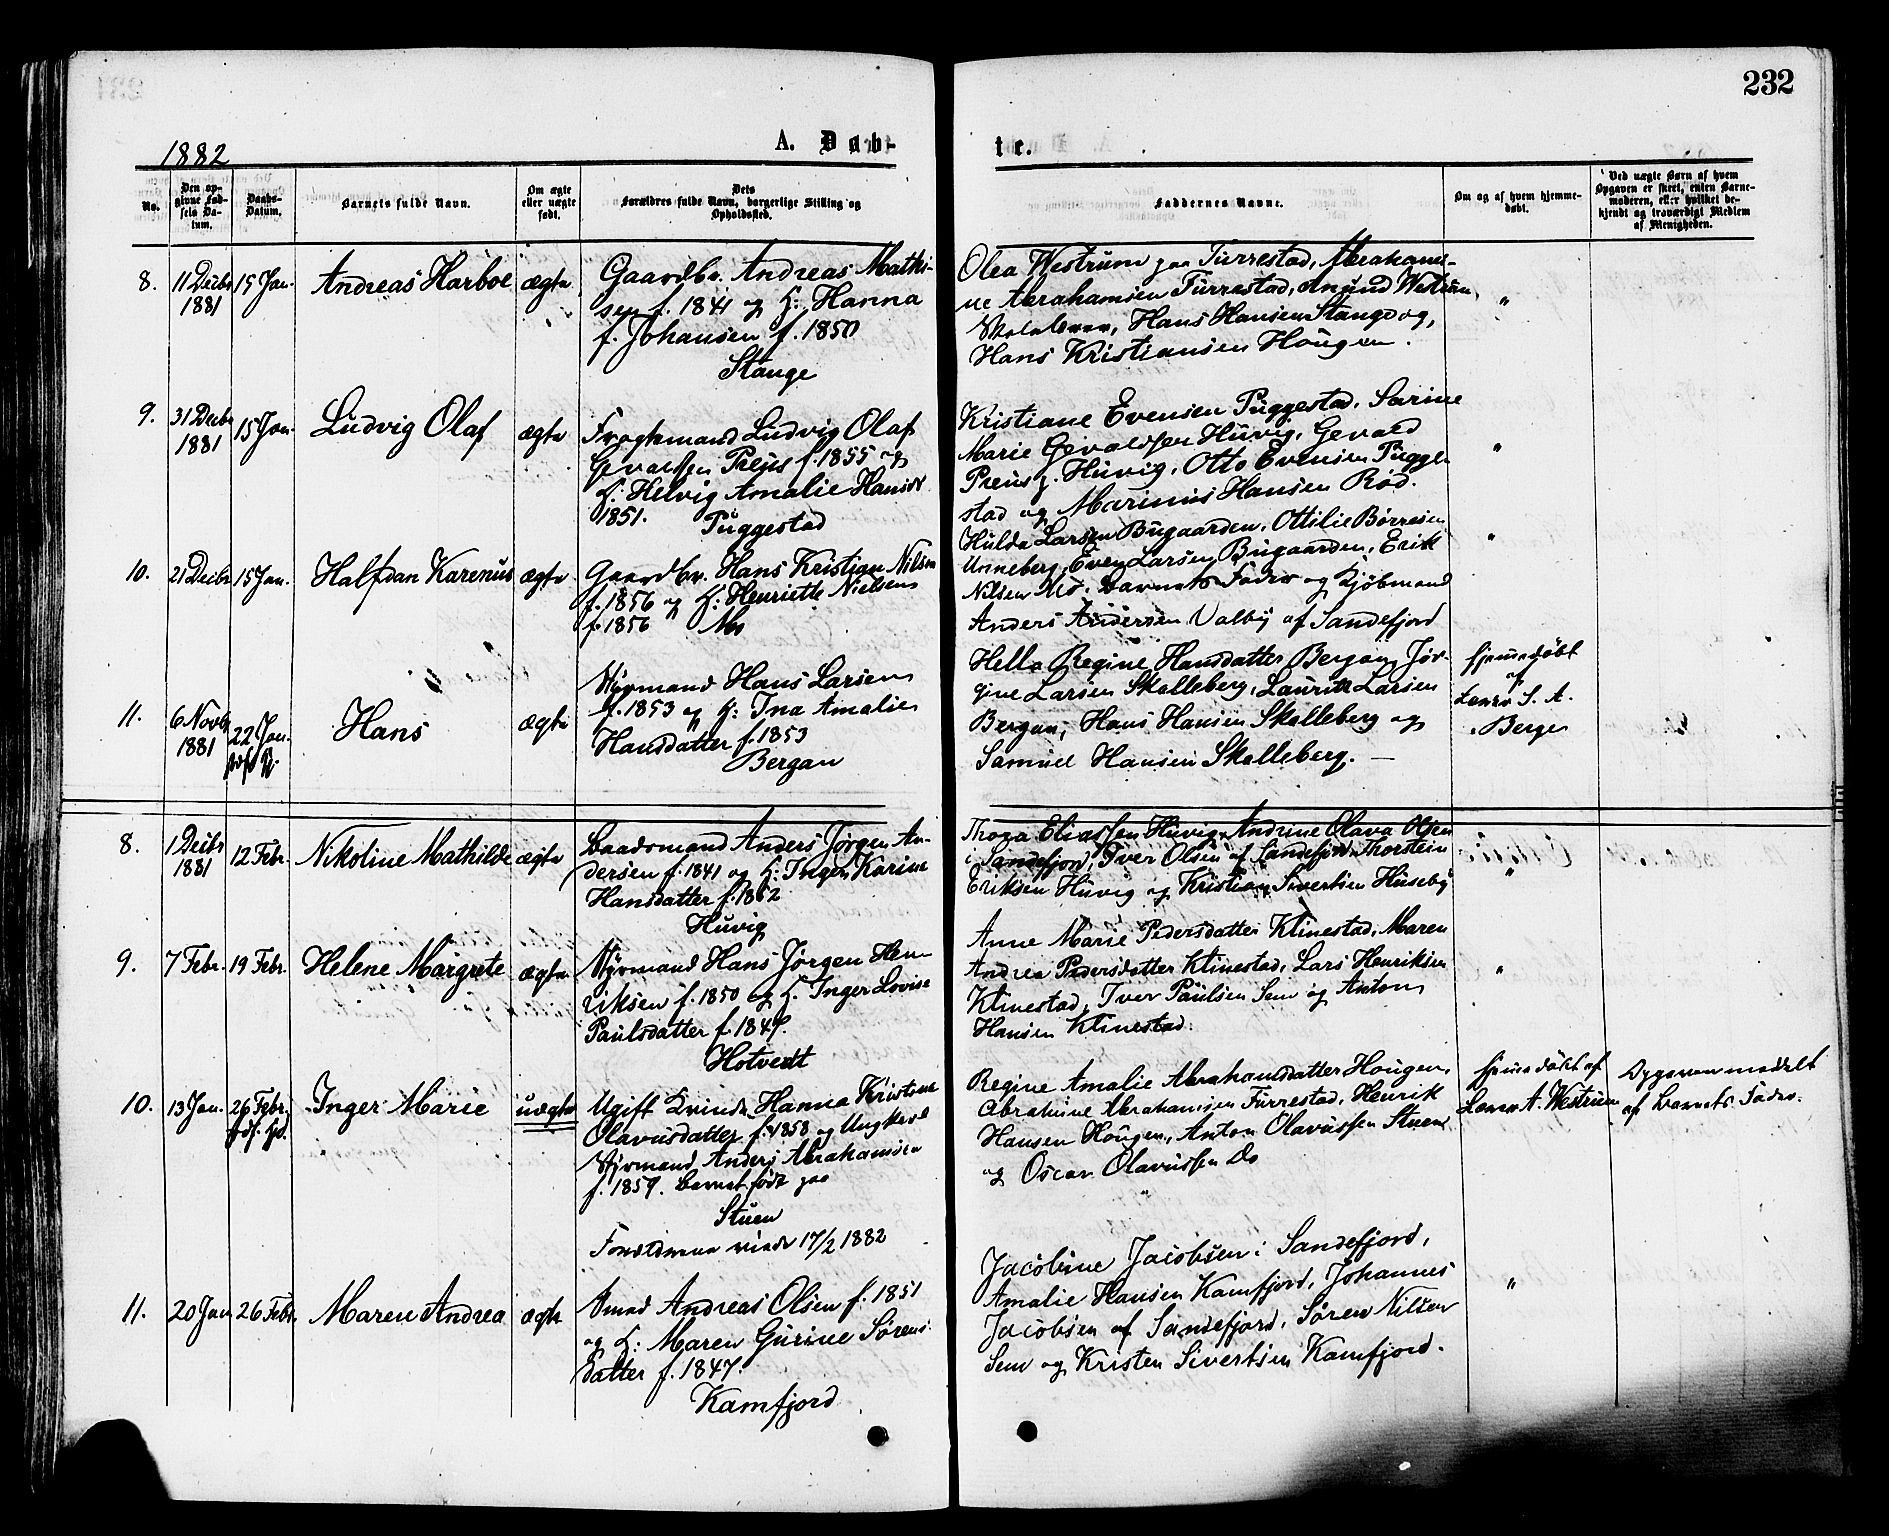 232
1882
A. Døb-
te.
No.
Den op-
givne Fød-
sels Da-
tum.
Daabs-
Datum.
Barnets fulde Navn.
Om ægte
eller uægte
født.
Dets
Forældres fulde Navn, borgerlige Stilling og
Opholdssted.
Faddernes Navne.
Om og af hvem hjemme-
døbt.
Ved uægte Børn af hvem
Opgaven er skeet, enten Barne-
moderen, eller hvilket be-
kjendt og troværdigt Medlem
af Menigheden.
8.
11 Decbr
1881
15 Jan.
Andreas Harboe
ægte
Gaardbr. Andreas Mathi-
sen f. 1841 og H: Hanna
f. Johansen f. 1850
Stange
Olea Westrum paa Furrestad, Abrahami-
ne Abrahamsen Furrestad, Anund Westrum,
Hans Hansen Stange og,
Hans Kristiansen Hougen.
"
9.
31 Decbr
1881
15 Jan.
Ludvig Olaf
ægte
Fragtmand Ludvig Olaf
Gevaldsen Preus f. 1855 og
H: Helvig Amalie Hansdt
1851.
Puggestad
Kristiane Evensen Puggestad, Sarine
Marie Gevaldsen Huvig, Gevald
Preus p. Huvig, Otto Evensen Pugge-
stad og Marinius Hansen Rød.
"
10.
21 Decbr
15 Jan.
Halfdan Karenus
ægte
Gaardbr. Hans Kristian Nilsen
f. 1856 og H: Henriette Nielsen
f. 1856 Mo
Hulda Larsen Bugaarden, Ottilie Børresen
Unneberg, Even Larsen Bugaarden, Erik
Nilsen Mo, Barnets Fader og Kjøbmand
Anders Andersen Valby af Sandefjord
"
11.
6 Novbr
1881
22 Jan.
Hans
ægte
Styrmand Hans Larsen
f. 1853 og H: Ina Amalie
Hansdatter f. 1853
Bergan
Hella Regine Hansdatter Bergan, Jør-
gine Larsen Skalleberg, Lauritz Larsen
Bergan, Hans Hansen Skalleberg og
Samuel Hansen Skalleberg. —
hjemmedøbt
af
Lærer S. A.
Berge
8.
1 Decbr
1881
12 Febr.
Nikoline Mathilde
ægte
Baadsmand Anders Jørgen An-
dersen f. 1841 og H: Inger Karine
Hansdatter f. 1862
Huvig
Thora Eliassen Huvig, Andrine Olava Olsen
i Sandefjord, Iver Olsen af Sandefjord, Thorstein
Eriksen Huvig og Kristian Sivertsen Huseby
"
9.
7 Febr.
19 Febr.
Helene Margrete
ægte
Styrmand Hans Jørgen Hen-
riksen f. 1850 og H. Inger Lovise
Paulsdatter f. 1847.
Hotvedt
Anne Marie Pedersdatter Klinestad, Maren
Andrea Pedersdatter Klinestad, Lars Henriksen
Klinestad, Iver Paulsen Sem og Anton
Hansen Klinestad.
"
10.
13 Jan.
26 Febr.
Inger Marie
uægte
Ugift Kvinde Hanna Kristine
Olavusdatter f. 1858 og Ungkarl
Styrmand Anders Abrahamsen
f. 1859. Barnet født paa
Stuen
Forældrene viede 17/2 1882
Regine Amalie Abrahamsdatter Hougen,
Abrahine Abrahamsen Furrestad, Henrik
Hansen Hougen, Anton Olavussen Stuen
og Oscar Olavussen Do
hjemmedøbt af
Lærer A. Westrum
Opgaven meddelt
af Barnets Fader.
11.
20 Jan
26 Febr.
Maren Andrea
ægte
Smed Andreas Olsen f. 1851
og H: Maren Gurine Sørens-
datter f. 1847.
Kamfjord
Jacobine Jacobsen i Sandefjord,
Amalie Hansen Kamfjord, Johannes
Jacobsen af Sandefjord, Søren Nilsen
Sem og Kristen Sivertsen Kamfjord.
"